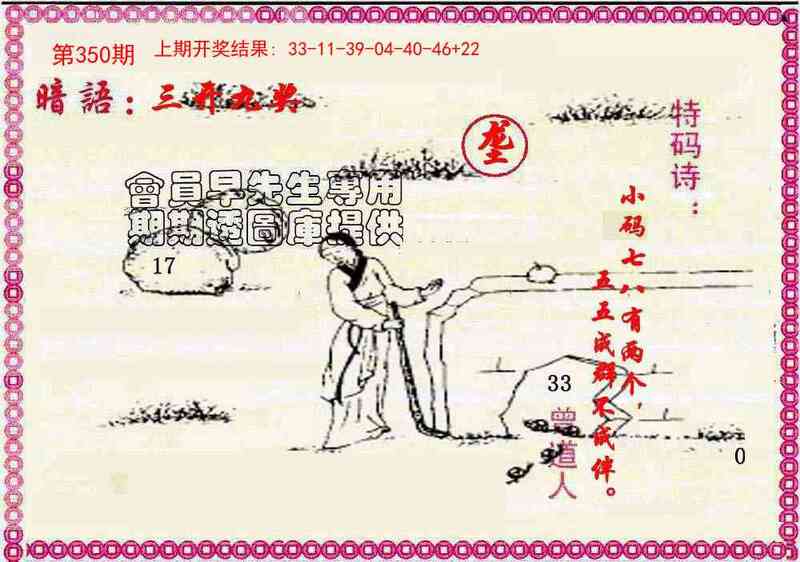 第350期
上期开奖结果: 33-11-39-04-40-46+22
暗語：三开九奖
垄
特码诗：
小码七八有两个，
五五成群不成伴。
會員早先生專用
期期透圖庫提供
17
33
曾道人
0